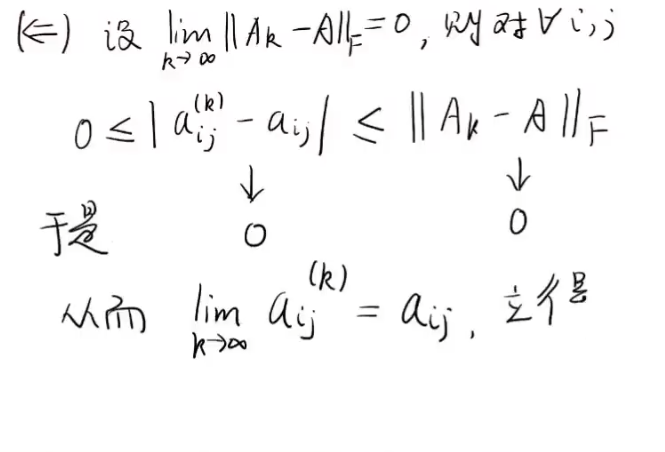 (⇐) 设 lim_{k→∞} ||A_k - A||_F = 0, 则对∀i,j
0 ≤ |a_{ij}^{(k)} - a_{ij}| ≤ ||A_k - A||_F
↓ ↓
于是 0 0
从而 lim_{k→∞} a_{ij}^{(k)} = a_{ij}, 立得